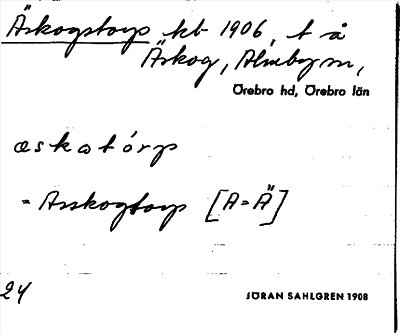 Äskogstorp kb 1906, t å
Äskog, Almby sn,
Örebro hd, Örebro län
æskatórp
= Asskogtorp [A=Ä]
24
JÖRAN SAHLGREN 1908